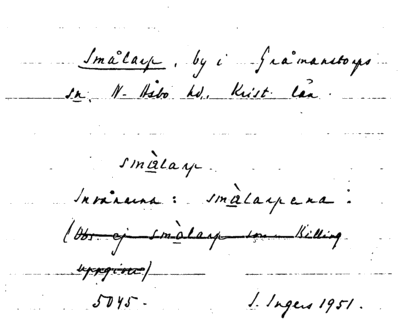 Smålarp, by i Gråmanstorps
sn, N. Åsbo hd., Krist. län.
smàlarp
Invånarna: smàlarpana.
(Obs. ej smàlarp som Killing
uppgiver)
5045. I. Ingers 1951.